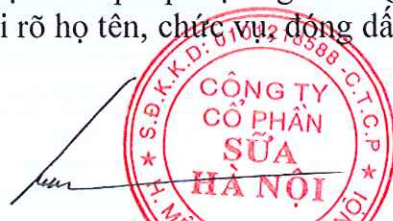 i rõ họ tên, chức vụ, đóng dấ
S.Đ.K.K.D: 0101218588 -C.T.C.P
CÔNG TY
CỔ PHẦN
SỮA
HÀ NỘI